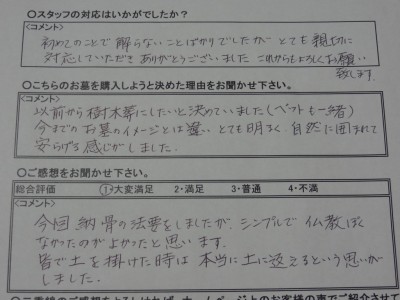 ○スタッフの対応はいかがでしたか?
<コメント>
初めてのことで解らないことばかりでしたが、とても親切に
対応していただき ありがとうございました これからもよろしくお願い
致します
○こちらのお墓を購入しようと決めた理由をお聞かせ下さい。
<コメント>
以前から樹木葬にしたいと決めていました(ペットも一緒)
今までのお墓のイメージとは違い、とても明るく 自然に囲まれて
安らげる感じがしました。
○ご感想をお聞かせ下さい。
総合評価 ①大変満足 2・満足 3・普通 4・不満
<コメント>
今回 納骨の法要をしましたが、シンプルで 仏教ぽく
なかったのがよかったと思います。
皆で土を掛けた時は 本当に土に返えるという思いが
しました。